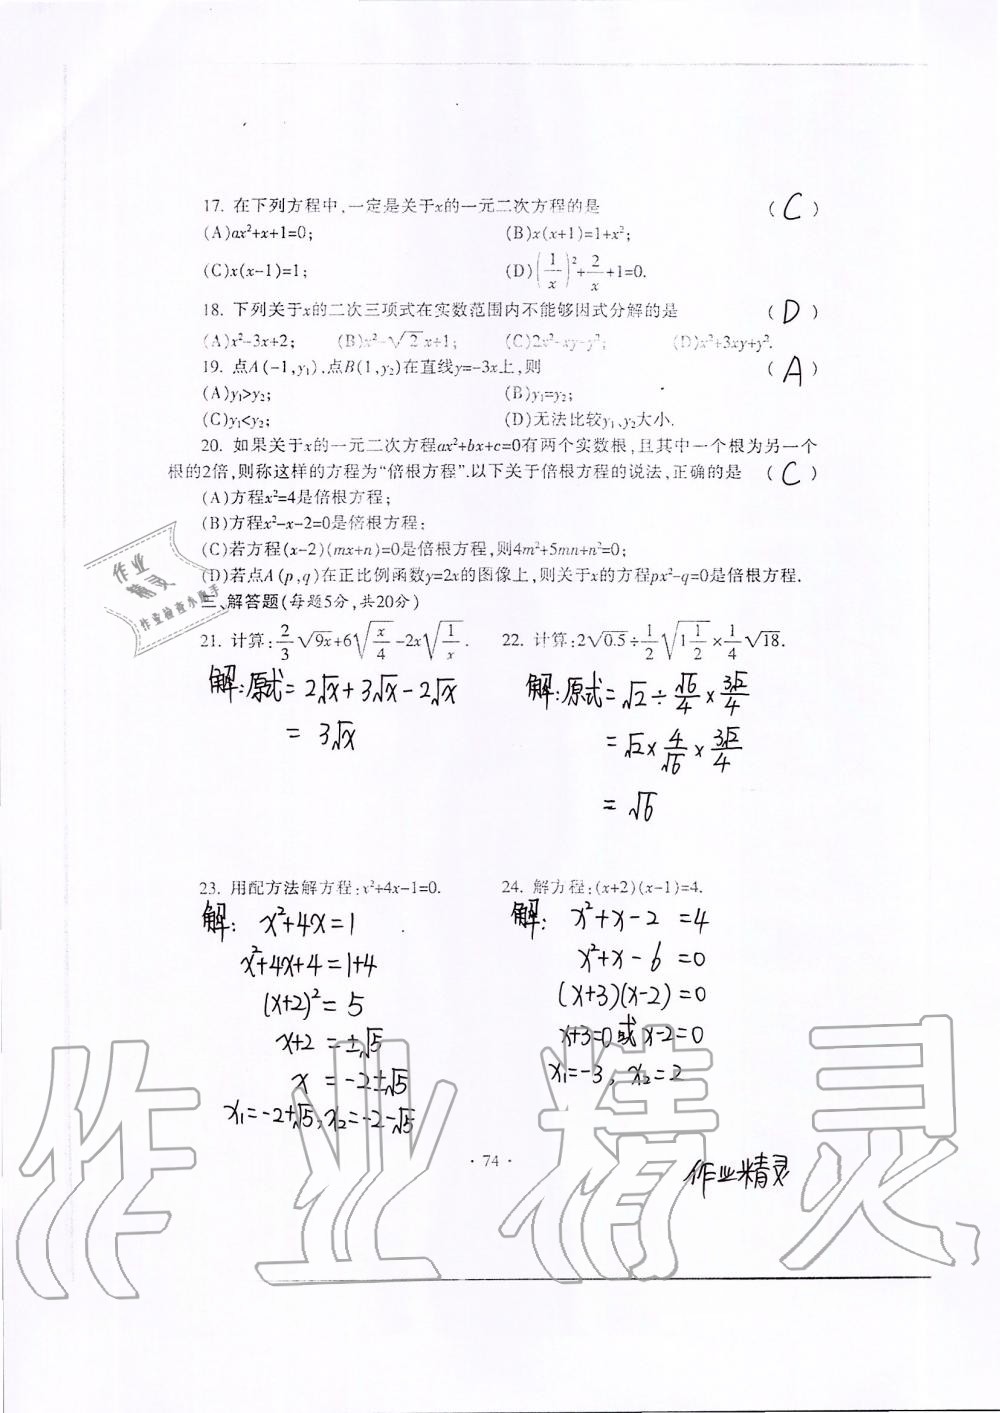 17. 在下列方程中,一定是关于x的一元二次方程的是 ( C )
(A)ax²+x+1=0; (B)x(x+1)=1+x²;
(C)x(x-1)=1; (D)(1/x)²+2/x+1=0.
18. 下列关于x的二次三项式在实数范围内不能够因式分解的是 ( D )
(A)x²-3x+2; (B)x²-√2x+1; (C)2x²-xy-y²; (D)x²+3xy+y².
19. 点A(-1,y₁).点B(1,y₂)在直线y=-3x上,则 ( A )
(A)y₁>y₂; (B)y₁=y₂;
(C)y₁<y₂; (D)无法比较y₁、y₂大小.
20. 如果关于x的一元二次方程ax²+bx+c=0有两个实数根,且其中一个根为另一个
根的2倍,则称这样的方程为“倍根方程”.以下关于倍根方程的说法,正确的是 ( C )
(A)方程x²=4是倍根方程;
(B)方程x²-x-2=0是倍根方程;
(C)若方程(x-2)(mx+n)=0是倍根方程,则4m²+5mn+n²=0;
(D)若点A(p,q)在正比例函数y=2x的图像上,则关于x的方程px²-q=0是倍根方程.
作业
精灵
作业检查小助手
三、解答题(每题5分,共20分)
21. 计算:2/3√9x+6√(x/4)-2x√(1/x). 22. 计算:2√0.5÷1/2√(1 1/2)×1/4√18.
解:原式=2√x+3√x-2√x 解:原式=√2÷√6/4×3√2/4
=3√x =√2×4/√6×3√2/4
=√6
23. 用配方法解方程:x²+4x-1=0. 24. 解方程:(x+2)(x-1)=4.
解: x²+4x=1 解: x²+x-2=4
x²+4x+4=1+4 x²+x-6=0
(x+2)²=5 (x+3)(x-2)=0
x+2=±√5 x+3=0或x-2=0
x=-2±√5 x₁=-3, x₂=2
x₁=-2+√5, x₂=-2-√5
·74·
作业精灵
作业精灵